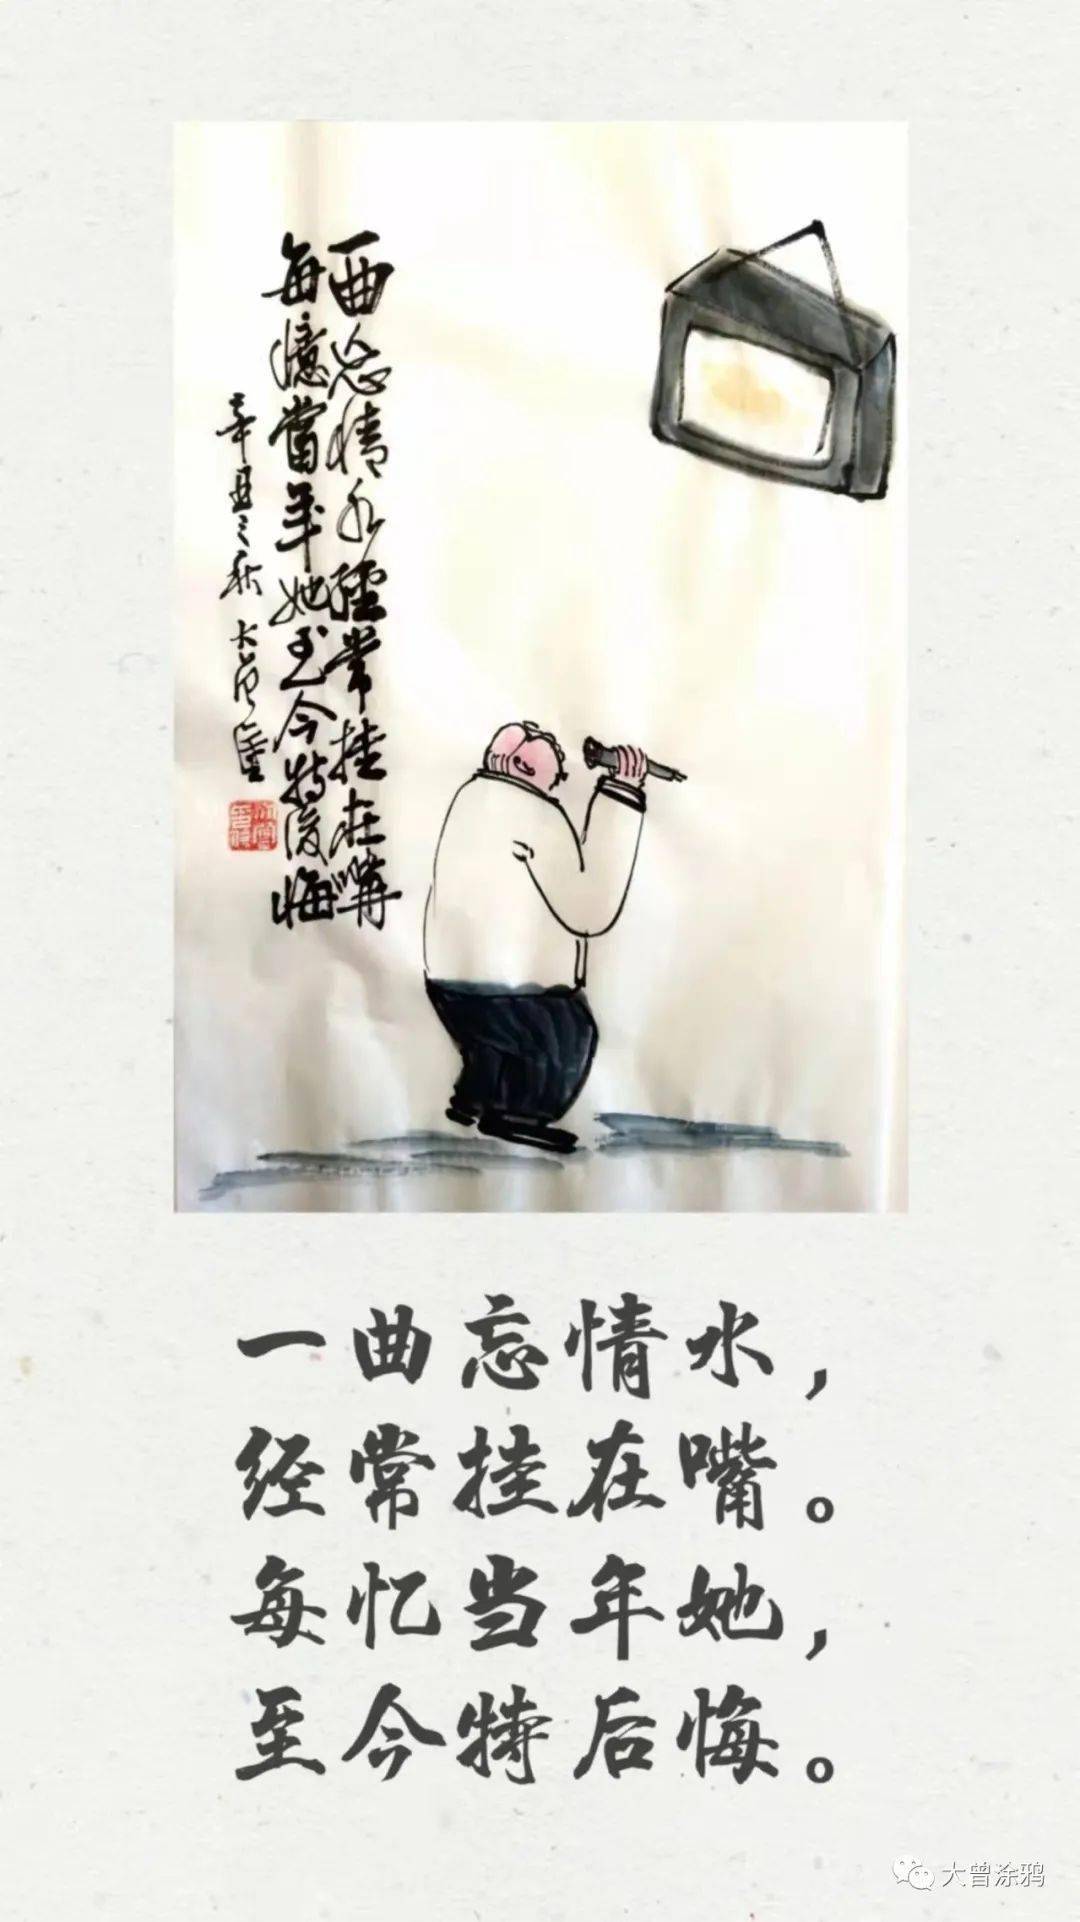 一曲忘情水經常挂在嘴
每憶當年她至今特後悔
辛丑之秋大曾畫
一曲忘情水，
经常挂在嘴。
每忆当年她，
至今特后悔。
大曾涂鸦